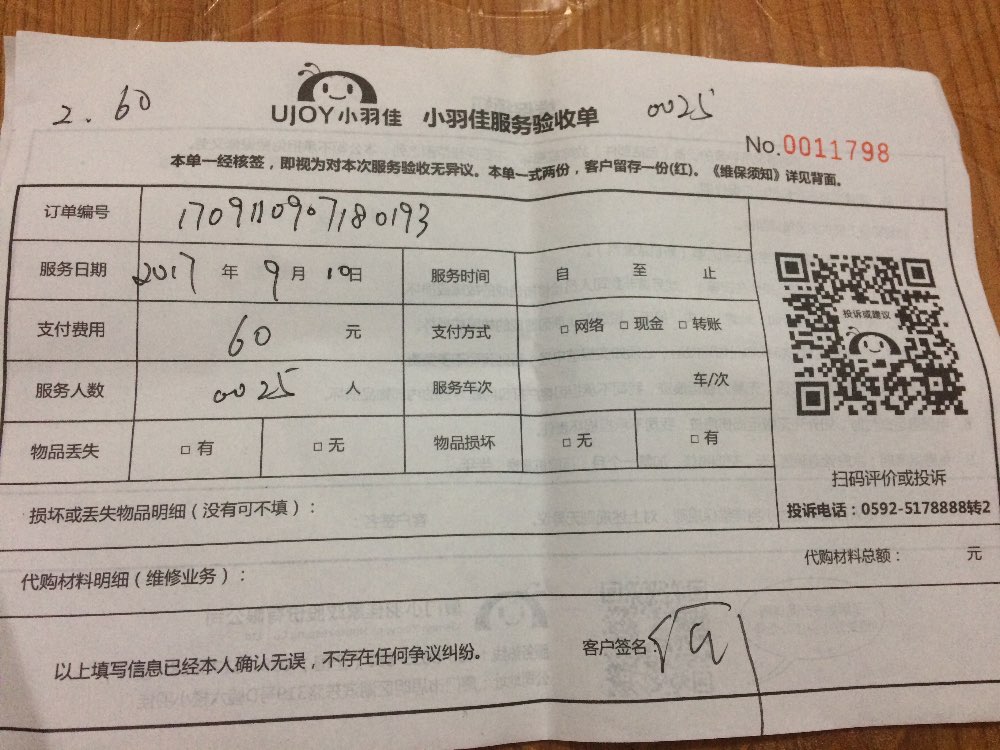 2. 60
UJOY小羽佳 小羽佳服务验收单
0025
No.0011798
本单一经核签，即视为对本次服务验收无异议。本单一式两份，客户留存一份(红)。《维保须知》详见背面。
订单编号 1709110907180193
服务日期 2017 年 9 月 10 日 服务时间 自 至 止
支付费用 60 元 支付方式 □ 网络 □ 现金 □ 转账
服务人数 0025 人 服务车次 车/次
物品丢失 □ 有 □ 无 物品损坏 □ 无 □ 有
投诉或建议
扫码评价或投诉
投诉电话：0592-5178888转2
损坏或丢失物品明细（没有可不填）：
代购材料总额： 元
代购材料明细（维修业务）：
客户签名：
以上填写信息已经本人确认无误，不存在任何争议纠纷。